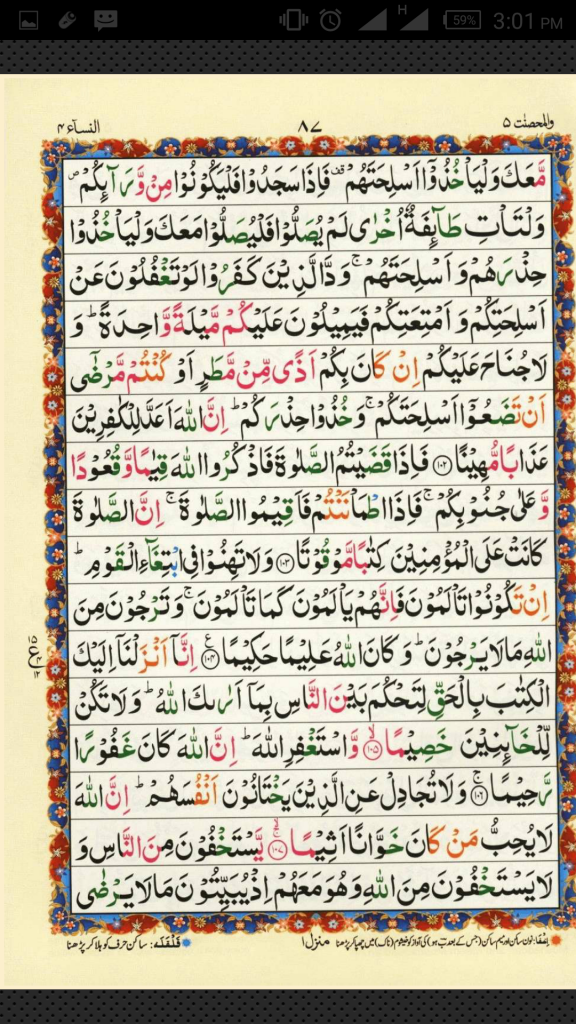 H 59% 3:01 PM
والمحصنٰت ۵ ۸۷ النسآء ۴
مَّعَكَ وَلْیَاْخُذُوْۤا اَسْلِحَتَهُمْ ۫ فَاِذَا سَجَدُوْا فَلْیَكُوْنُوْا مِنْ وَّرَآىِٕكُمْ ۪
وَلْتَاْتِ طَآىِٕفَةٌ اُخْرٰی لَمْ یُصَلُّوْا فَلْیُصَلُّوْا مَعَكَ وَلْیَاْخُذُوْا
حِذْرَهُمْ وَ اَسْلِحَتَهُمْ ۚ وَدَّ الَّذِیْنَ كَفَرُوْا لَوْ تَغْفُلُوْنَ عَنْ
اَسْلِحَتِكُمْ وَ اَمْتِعَتِكُمْ فَیَمِیْلُوْنَ عَلَیْكُمْ مَّیْلَةً وَّاحِدَةً ؕ وَ
لَا جُنَاحَ عَلَیْكُمْ اِنْ كَانَ بِكُمْ اَذًی مِّنْ مَّطَرٍ اَوْ كُنْتُمْ مَّرْضٰۤی
اَنْ تَضَعُوْۤا اَسْلِحَتَكُمْ ۚ وَخُذُوْا حِذْرَكُمْ ؕ اِنَّ اللّٰهَ اَعَدَّ لِلْكٰفِرِیْنَ
عَذَابًا مُّهِیْنًا ﴿۱۰۲﴾ فَاِذَا قَضَیْتُمُ الصَّلٰوةَ فَاذْكُرُوا اللّٰهَ قِیٰمًا وَّقُعُوْدًا
وَّ عَلٰی جُنُوْبِكُمْ ۚ فَاِذَا اطْمَاْنَنْتُمْ فَاَقِیْمُوا الصَّلٰوةَ ۚ اِنَّ الصَّلٰوةَ
كَانَتْ عَلَی الْمُؤْمِنِیْنَ كِتٰبًا مَّوْقُوْتًا ﴿۱۰۳﴾ وَلَا تَهِنُوْا فِی ابْتِغَآءِ الْقَوْمِ ؕ
اِنْ تَكُوْنُوْا تَاْلَمُوْنَ فَاِنَّهُمْ یَاْلَمُوْنَ كَمَا تَاْلَمُوْنَ ۚ وَتَرْجُوْنَ مِنَ
اللّٰهِ مَا لَا یَرْجُوْنَ ؕ وَ كَانَ اللّٰهُ عَلِیْمًا حَكِیْمًا ﴿۱۰۴﴾ اِنَّاۤ اَنْزَلْنَاۤ اِلَیْكَ
ع ۱۵ ۴ ۱۲
الْكِتٰبَ بِالْحَقِّ لِتَحْكُمَ بَیْنَ النَّاسِ بِمَاۤ اَرٰىكَ اللّٰهُ ؕ وَلَا تَكُنْ
لِّلْخَآىِٕنِیْنَ خَصِیْمًا ﴿۱۰۵﴾ۙ وَّاسْتَغْفِرِ اللّٰهَ ؕ اِنَّ اللّٰهَ كَانَ غَفُوْرًا
رَّحِیْمًا ﴿۱۰۶﴾ۚ وَلَا تُجَادِلْ عَنِ الَّذِیْنَ یَخْتَانُوْنَ اَنْفُسَهُمْ ؕ اِنَّ اللّٰهَ
لَا یُحِبُّ مَنْ كَانَ خَوَّانًا اَثِیْمًا ﴿۱۰۷﴾ۚۙ یَّسْتَخْفُوْنَ مِنَ النَّاسِ وَ
لَا یَسْتَخْفُوْنَ مِنَ اللّٰهِ وَهُوَ مَعَهُمْ اِذْ یُبَیِّتُوْنَ مَا لَا یَرْضٰی
اِخفا: نون ساکن اور میم ساکن (جس کے بعد ب ہو) کی آواز کو خیشوم (ناک) میں چھپا کر پڑھنا منزل ۱ قَلْقَلَه: ساکن حرف کو ہلا کر پڑھنا